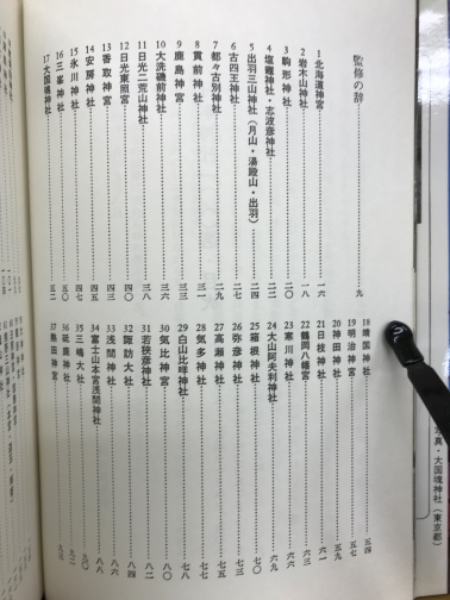 監修の辞……九
1 北海道神宮……一六
2 岩木山神社……一八
3 駒形神社……二〇
4 塩竈神社・志波彦神社……二二
5 出羽三山神社（月山・湯殿山・出羽）……二四
6 古四王神社……二七
7 都々古別神社……二九
8 貫前神社……三一
9 鹿島神宮……三三
10 大洗磯前神社……三六
11 日光二荒山神社……三八
12 日光東照宮……四〇
13 香取神宮……四三
14 安房神社……四五
15 氷川神社……四七
16 三峯神社……五〇
17 大国魂神社……五二
18 靖国神社……五四
19 明治神宮……五七
20 神田神社……五九
21 日枝神社……六一
22 鶴岡八幡宮……六三
23 寒川神社……六六
24 大山阿夫利神社……六九
25 箱根神社……七〇
26 弥彦神社……七三
27 高瀬神社……七五
28 気多神社……七七
29 白山比咩神社……七八
30 気比神宮……八〇
31 若狭彦神社……八二
32 諏訪大社……八四
33 浅間神社……八六
34 富士山本宮浅間神社……八八
35 三嶋大社……九〇
36 砥鹿神社……九二
37 熱田神宮……九三
写真・大国魂神社（東京都）